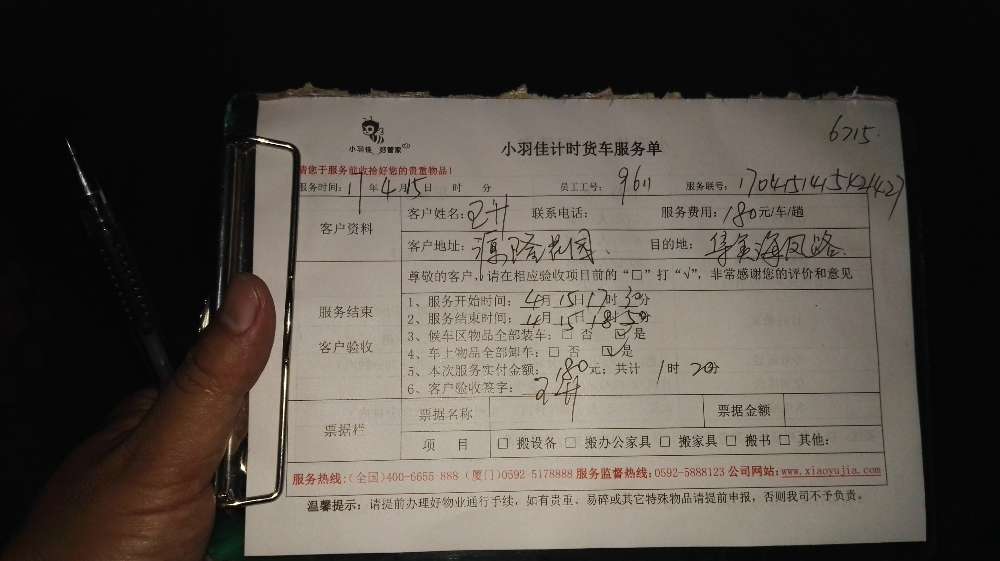 6715.
小羽佳 好管家
小羽佳计时货车服务单
请您于服务前收拾好您的贵重物品!
服务时间: 17 年 4 月 15 日 时 分 员工工号: 9611 服务联号:
客户资料
客户姓名: 联系电话: 服务费用: 180 元/车/趟
客户地址: 花园 目的地: 海凤路
尊敬的客户,请在相应验收项目前的“□”打“√”,非常感谢您的评价和意见
服务结束
客户验收
1、服务开始时间: 4月 15日17时30分
2、服务结束时间: 4月 15日18时50分
3、候车区物品全部装车: □ 否 ☑ 是
4、车上物品全部卸车: □ 否 ☑ 是
5、本次服务实付金额: 180 元; 共计 1 时 20分
6、客户验收签字:
票据栏
票据名称 票据金额
项 目 □ 搬设备 □ 搬办公家具 □ 搬家具 □ 搬书 □ 其他:
服务热线:(全国)400-6655 888 (厦门)0592-5178888 服务监督热线:0592-5888123 公司网站:www.xiaoyujia.com
温馨提示: 请提前办理好物业通行手续, 如有贵重、易碎或其它特殊物品请提前申报, 否则我司不予负责。